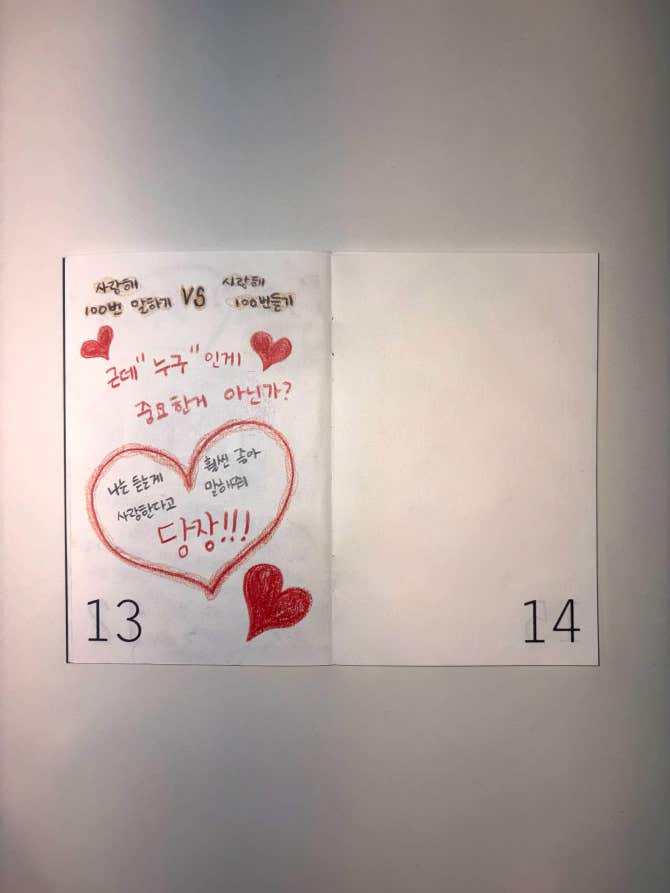 사랑해
100번 말하기
VS
사랑해
100번듣기
근데 "누구" 인게
중요한거 아닌가?
나는 듣는게
훨씬 좋아
사랑한다고
말해줘
당장!!!
13
14